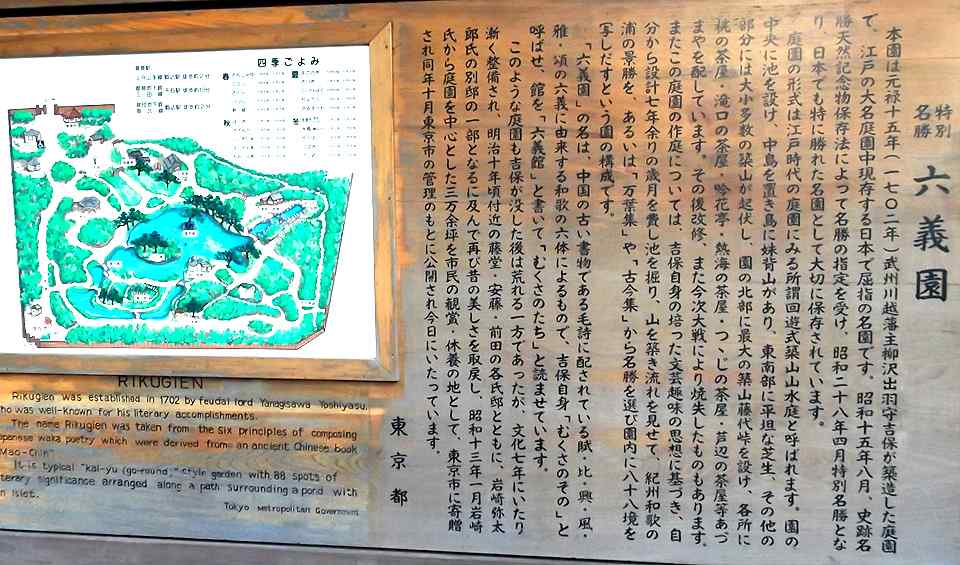 特別
名勝
六義園
本園は元禄十五年(一七〇二年)武州川越藩主柳沢出羽守吉保が築造した庭園
で、江戸の大名庭園中現存する日本で屈指の名園です。昭和十五年八月、史跡名
勝天然記念物保存法によって名勝の指定を受け、昭和二十八年四月特別名勝とな
り、日本でも特に勝れた名園として大切に保存されています。
庭園の形式は江戸時代の庭園にみる所謂回遊式築山山水庭と呼ばれます。園の
中央に池を設け、中島を置き島に妹背山があり、東南部に平坦な芝生、その他の
部分には大小多数の築山が起伏し、園の北部に最大の築山藤代峠を設け、各所に
桃の茶屋・滝口の茶屋・吟花亭・熱海の茶屋・つゝじの茶屋・芦辺の茶屋等あづ
まやを配しています。その後改修、また今次大戦により焼失したものもあります。
またこの庭園の作庭については、吉保自身の培った文芸趣味の思想に基づき、自
分から設計七年余りの歳月を費し池を掘り、山を築き流れを見せて、紀州和歌の
浦の景勝を、あるいは「万葉集」や「古今集」から名勝を選び園内に八十八境を
写しだすという園の構成です。
「六義園」の名は、中国の古い書物である毛詩に配されている賦・比・興・風・
雅・頌の六義に由来する和歌の六体によるもので、吉保自身、「むくさのその」と
呼ばせ、館を「六義館」と書いて、「むくさのたち」と読ませています。
このような庭園も吉保が没した後は荒れる一方であったが、文化七年にいたり
漸く整備され、明治十年頃付近の藤堂・安藤・前田の各氏邸とともに、岩崎弥太
郎氏の別邸の一部となるに及んで再び昔の美しさを取戻し、昭和十三年一月岩崎
氏から庭園を中心とした三万余坪を市民の観賞・休養の地として、東京市に寄贈
され同年十月東京市の管理のもとに公開され今日にいたっています。
東京都
四季ごよみ
春
夏
秋
冬
RIKUGIEN
Rikugien was established in 1702 by feudal lord Yanagisawa Yoshiyasu,
who was well-known for his literary accomplishments.
The name Rikugien was taken from the six principles of composing
Japanese waka poetry which were derived from an ancient Chinese book
"Mao-Chih"
It is typical "kai-yu (go-round)" style garden with 88 spots of
literary significance arranged along a path surrounding a pond with
an islet.
Tokyo Metropolitan Government